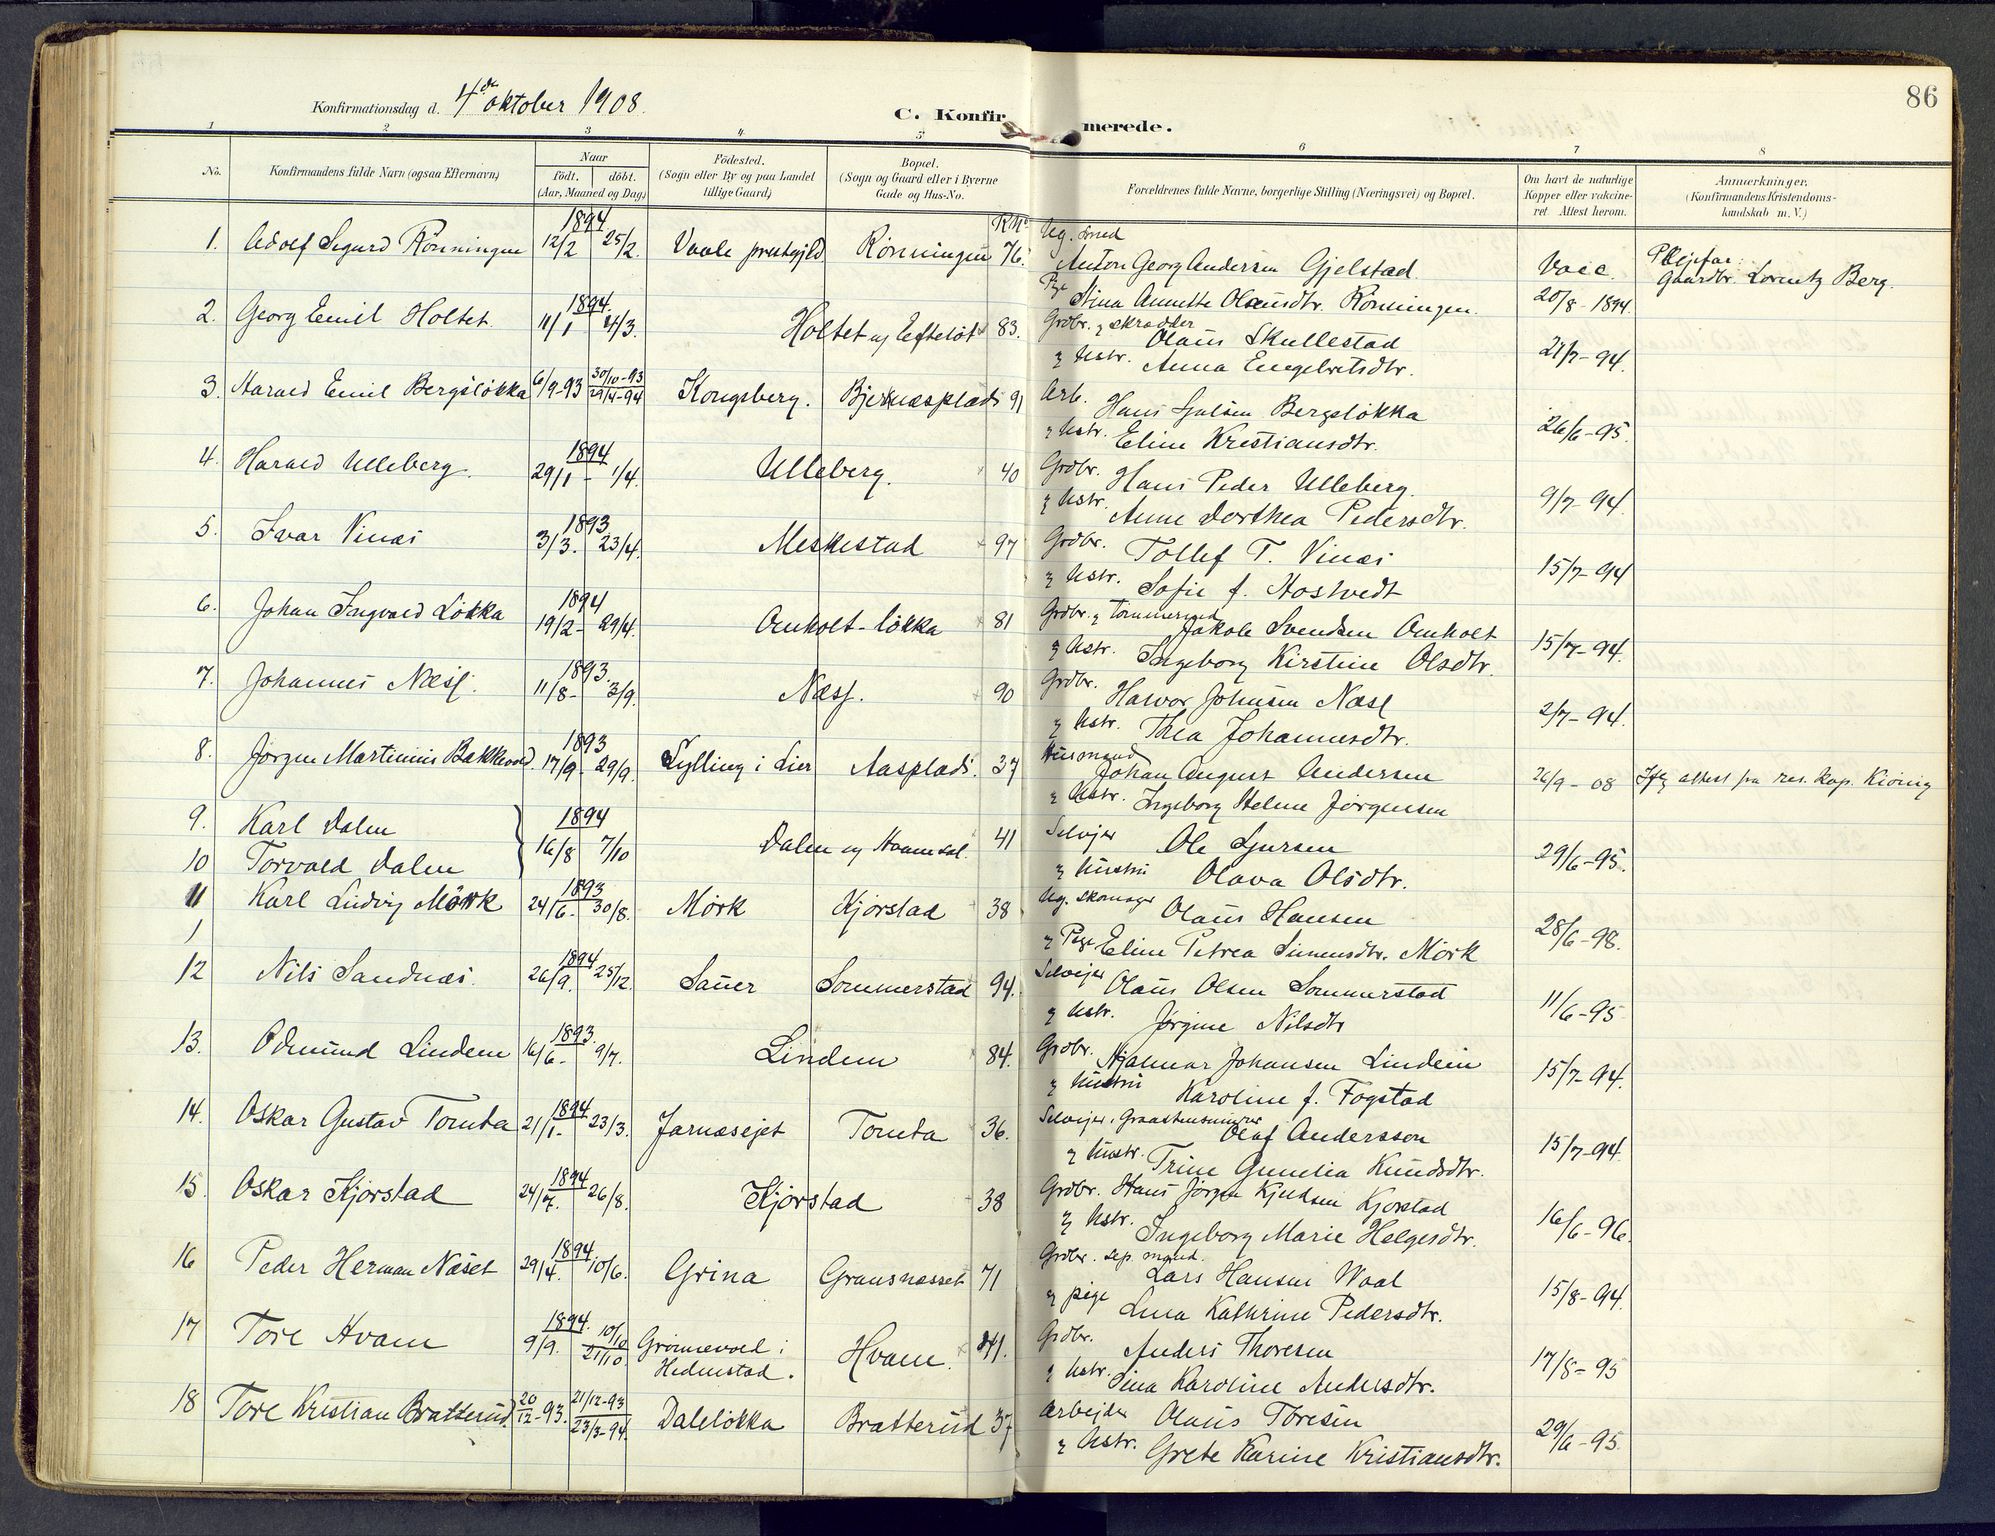 86
Konfirmationsdag d. 4de oktober 1908.
C. Konfirmerede.
1 2 3 4 5 6 7 8
No. Konfirmandens fulde Navn (ogsaa Efternavn) Naar født. døbt. (Aar, Maaned og Dag) Fødested. (Sogn eller By og paa Landet tillige Gaard) Bopæl. (Sogn og Gaard eller i Byerne Gade og Hus-No. Forældrenes fulde Navne, borgerlige Stilling (Næringsvei) og Bopæl. Om havt de naturlige Kopper eller vakcineret Attest herom. Anmærkninger. (Konfirmandens Kristendomskundskab m. V.)
1. Adolf Sigurd Rönningen 1894 12/2 25/2. Vaale prestgjld Rönningen 76. Ug. Smed Anton Georg Andersen Gjelstad. Vacc. Plejefar: Gaardbr. Lorentz Berg.
Pge Nina Annette Olausdtr. Rönningen. 20/8-1894.
2. Georg Emil Holtet. 1894. 11/1 4/3. Holtet og Efteløt 83. Grdbr. og skrædder Olaus Skullestad
og Hstr. Anna Engebretsdtr. 21/7-94.
3. Harald Emil Bergsløkka 6/9-93 30/10-93 29/4-94 Kongsberg. Bjernæsplads 91 Arb. Hans Julsen Bergsløkka
og Hstr. Eline Kristiansdtr. 26/6-95.
4. Harald Ulleberg. 1894 29/1 - 1/4. Ulleberg. 40 Grdbr. Hans Peder Ulleberg.
og Hstr. Anne Dorthea Pedersdtr. 9/7-94.
5. Ivar Vinæs 1893 3/3. 23/4. Meskestad 97 Grdbr. Tollef T. Vinæs
og Hstr. Sofie f. Hostvedt 15/7-94
6. Johan Ingvald Løkka 1894 19/2- 29/4. Omholt-løkka 81 Grdbr. og Tømmermd Jakob Svendsen Omholt
og Hstr. Ingeborg Kirstine Olsdtr. 15/7-94.
7. Johannes Næss. 1893. 11/8- 3/9. Næss. 90 Grdbr. Halvor Johnsen Næss
og Hstr. Thea Johannesdtr. 2/7-94.
8. Jørgen Martinius Bakkevold. 1893 17/9- 29/9. Sylling i Lier Aasplads. 37 Husmand Johan August Andersen
og Hstr. Ingeborg Helene Jørgensen 26/9-08 Ifg attest fra res. kap. Kiønig
9. Karl Dalen 1894 16/8 7/10 Dalen og Hvamsdal. 41 Selvejer Ole Sjursen
10 Torvald Dalen og Hustru Olava Olsdtr. 29/6-95.
11 Karl Ludvig Mörk 1893 24/6- 30/8. Mörk Kjørstad 38 Ug. Skomager Olaus Hansen
og Pige Eline Petrea Simensdtr. Mörk 28/6-98.
12 Nils Sandnæs. 1894 26/9. 25/12. Sauer Sommerstad 94. Selvejer Olaus Olsen Sommerstad
og Hstr. Jørgine Nilsdtr 11/6-95
13. Odmund Lindem 1893. 16/6- 9/7. Lindem 84. Grdbr. Hjalmar Johansen Lindem
og Hustru Karoline f. Fogstad 15/7-94.
14. Oskar Gustav Tomta 1894 21/1- 23/3. Jarnæsejet Tomta 36. Selvejer, Graastensminerer Olaf Andersson
og Hustr. Trine Gunelia Knudsdtr. 15/7-94.
15. Oskar Kjørstad 1894 24/7. 26/8. Kjørstad 38 Grdbr. Hans Jørgen Kjeldsen Kjørstad
og Hstr. Ingeborg Marie Helgesdtr. 16/6-96.
16 Peder Herman Næset 1894 29/4. 10/6. Grina Gransnæsset 71 Grdbr. sep. mand. Lars Hansen Waal
og pige Lina Kathrine Pedersdtr. 15/8-94.
17 Tore Hvam 1894. 9/9. 10/10 21/10. Grönnevold i Hedenstad. Hvam. 41. Grdbr. Anders Thoresen
og Hstr. Sina Karoline Andersdtr. 17/8-95
18 Tore Kristian Bratterud. 20/12-93. 21/12-93 23/3-94. Daleløkka Bratterud 37 Arbejder Olaus Toresen
og Hstr. Grete Karine Kristiansdtr. 29/6-95.